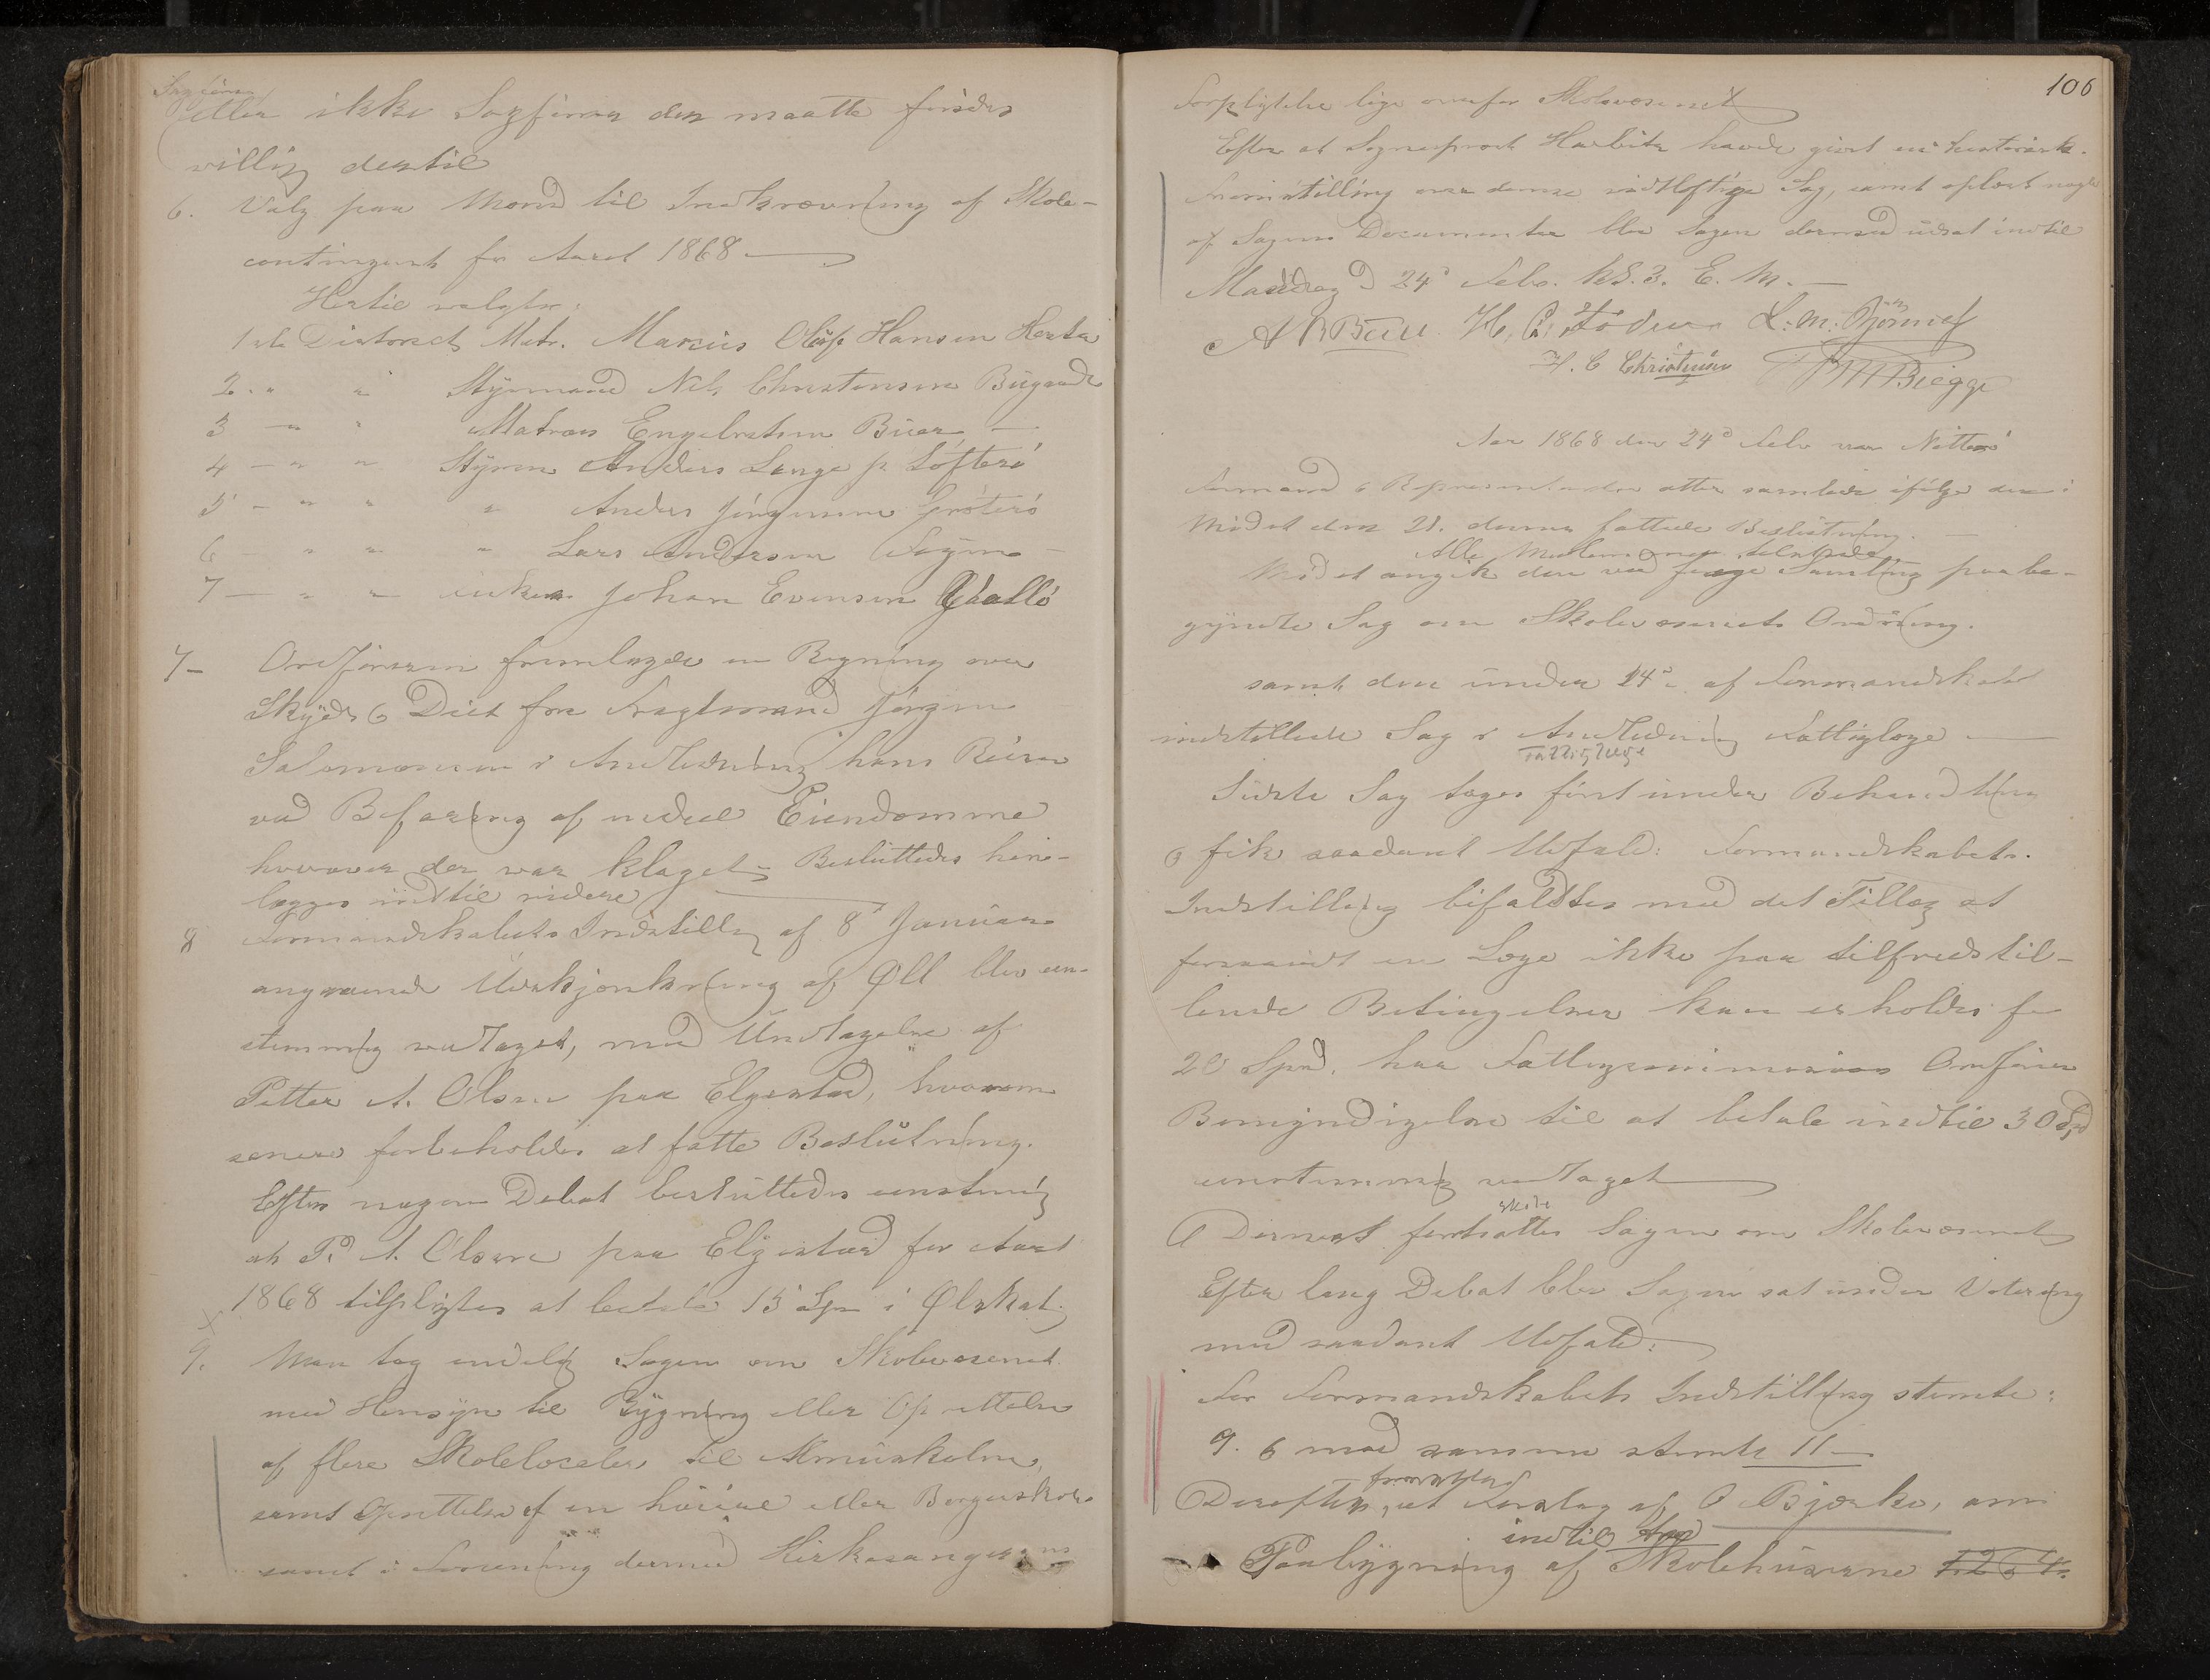 eller ikke Sagfører der maatte findes
villig dertil
6. Valg paa Mænd til Indkrævning af Skole-
contingent for Aaret 1868
Hertil valgtes:
1ste District Matr. Marius Oluf Hansen Herstø
2. " " Styrmand Nils Christensen Buga
3 - " " Matros Engebretsen Buer -
4 - " " Styrm Anders Lange p.
5 - " " " Anders Jørgensen
6 - " " " Lars Andersen
7 - " " Johan Evensen
7- Ordføreren fremlagde en Regning over
Skyds & Diet fra Fragtmand Jørgen
Salomonsen i Anledning hans Reiser
ved Befaring af endeel Eiendomme
hvorover der var klaget - Besluttedes hen-
lægges indtil videre
8 Formandskabets Indstilling af 8d Januar
angaaende Udskjænkning af Øll blev een-
stemmig vedtaget, med Undtagelse af
Petter A. Olsen paa Elgestad, hvorom
senere forbeholdes at fatte Beslutning.
Efter nogen Debat besluttedes eenstemmig
at P. A. Olsen paa Elgestad for Aaret
1868 tilpligtes at betale 15 Spd i Ølskat.
9. Man tog endelig Sagen om Skolevæsenet
med Hensyn til Bygning eller Oprettelse
af flere Skolelocaler til Almueskolen,
samt Oprettelse af en høiere eller Borgerskole
samt i Forening dermed Kirkesangerens
106
Forpligtelse lige overfor Skolevæsenet
Efter at Sogneprest Harbitz havde givet en historisk
Fremstilling over denne vidtløftige Sag, samt oplæst nogle
af Sagens Documenter blev Sagen dermed udsat indtil
Mandag d 24d Febr. Kl. 3. E. M. -
A B Bull H. C. L. M. Bjørn
H. C Christensen
Aar 1868 den 24d Febr var Nøtterø
Formænd & Repræsentanter atter samlede ifølge den i
Mødet den 21. dennes fattede Beslutning. -
Alle Medlemmer tilstede
Mødet angik den ved forrige Samling paabe-
gyndte Sag om Skolevæsenets Ordning.
samt den under 24de af Formandskabet
indstillede Sag i Anledning Fattiglæge
Fattiglæge
Sidste Sag toges først under Behandling
& fik saadant Udfald: Formandskabets
Indstilling bifaldtes med det Tillæg at
forsaavidt en Læge ikke paa tilfredsstil-
lende Betingelser kan erholdes for
20 Spd. har Fattigcommissionens Ordfører
Bemyndigelse til at betale indtil 30 Spd
eenstemmig vedtaget
Dernæst fortsattes Sagen om Skolevæsenet
Efter lang Debat blev Sagen sat under Votering
med saadant Udfald:
For Formandskabets Indstilling stemte:
9. & mod samme stemte 11
Derefter fremsattes et Forslag af O Bjerke, om
indtil
Paabygning af Skolehusene